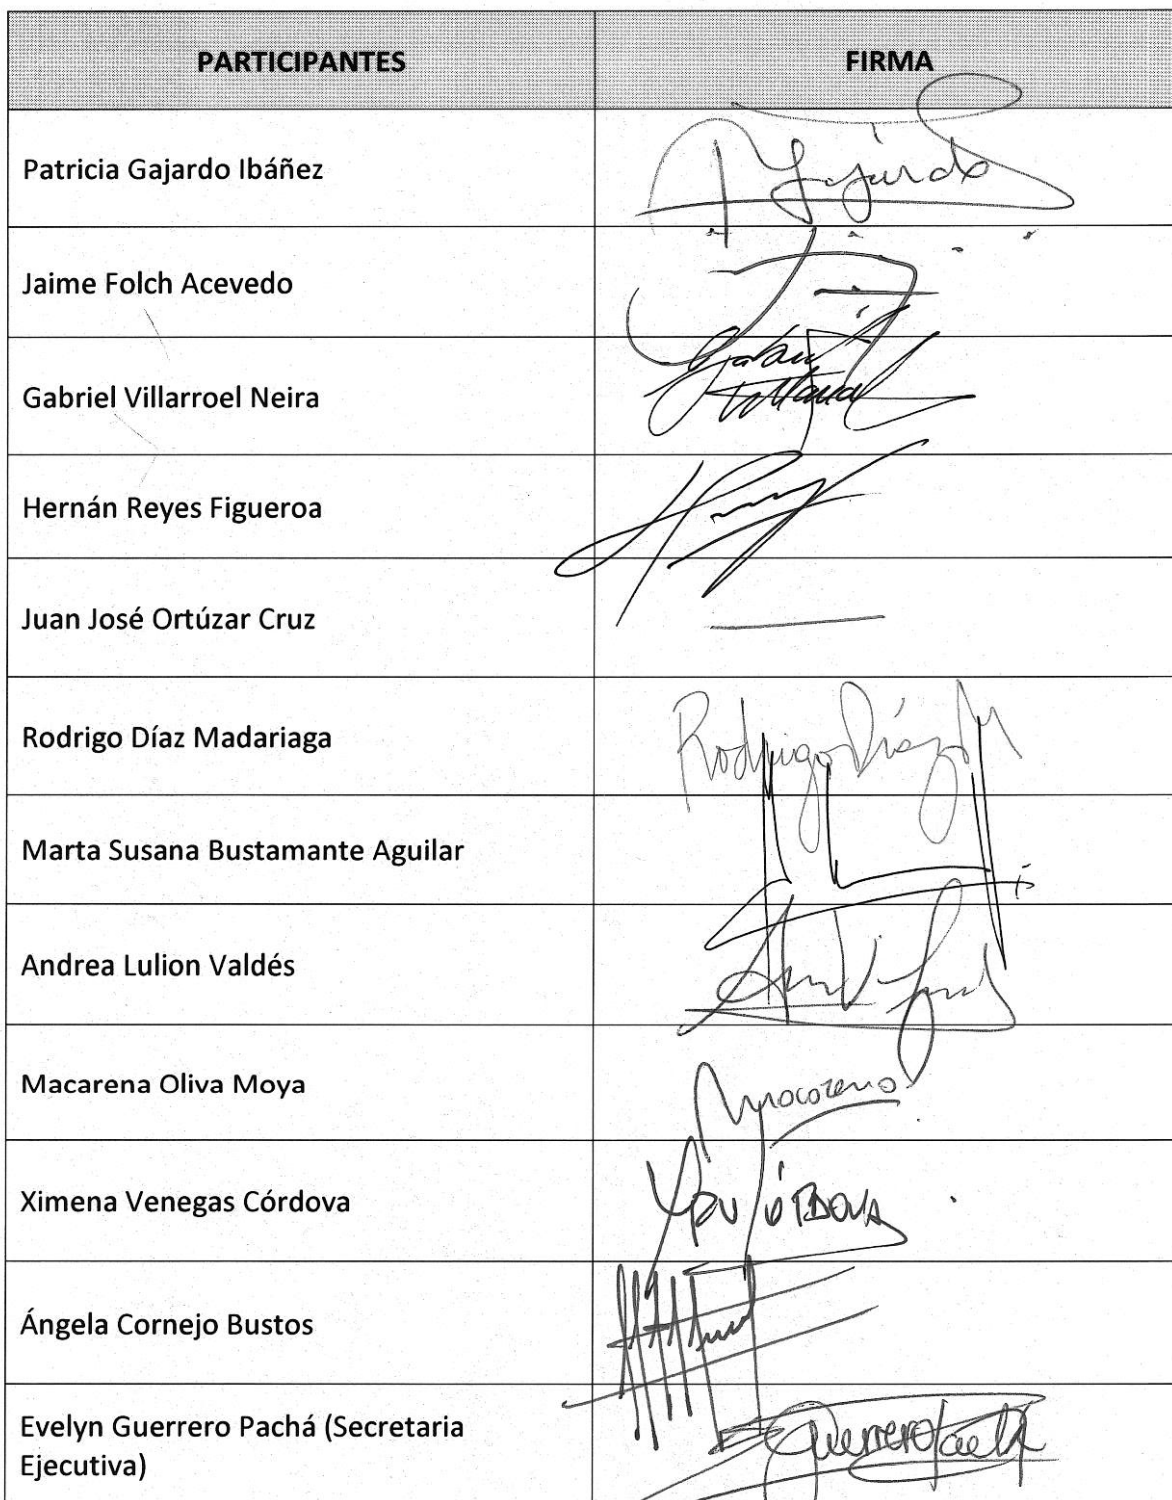 PARTICIPANTES FIRMA
Patricia Gajardo Ibáñez Gajardo
Jaime Folch Acevedo
Gabriel Villarroel Neira Gabriel
Hernán Reyes Figueroa
Juan José Ortúzar Cruz
Rodrigo Díaz Madariaga Rodrigo Díaz M
Marta Susana Bustamante Aguilar
Andrea Lulion Valdés
Macarena Oliva Moya Macarena
Ximena Venegas Córdova CÓRDOVA
Ángela Cornejo Bustos
Evelyn Guerrero Pachá (Secretaria
Ejecutiva) Guerrero